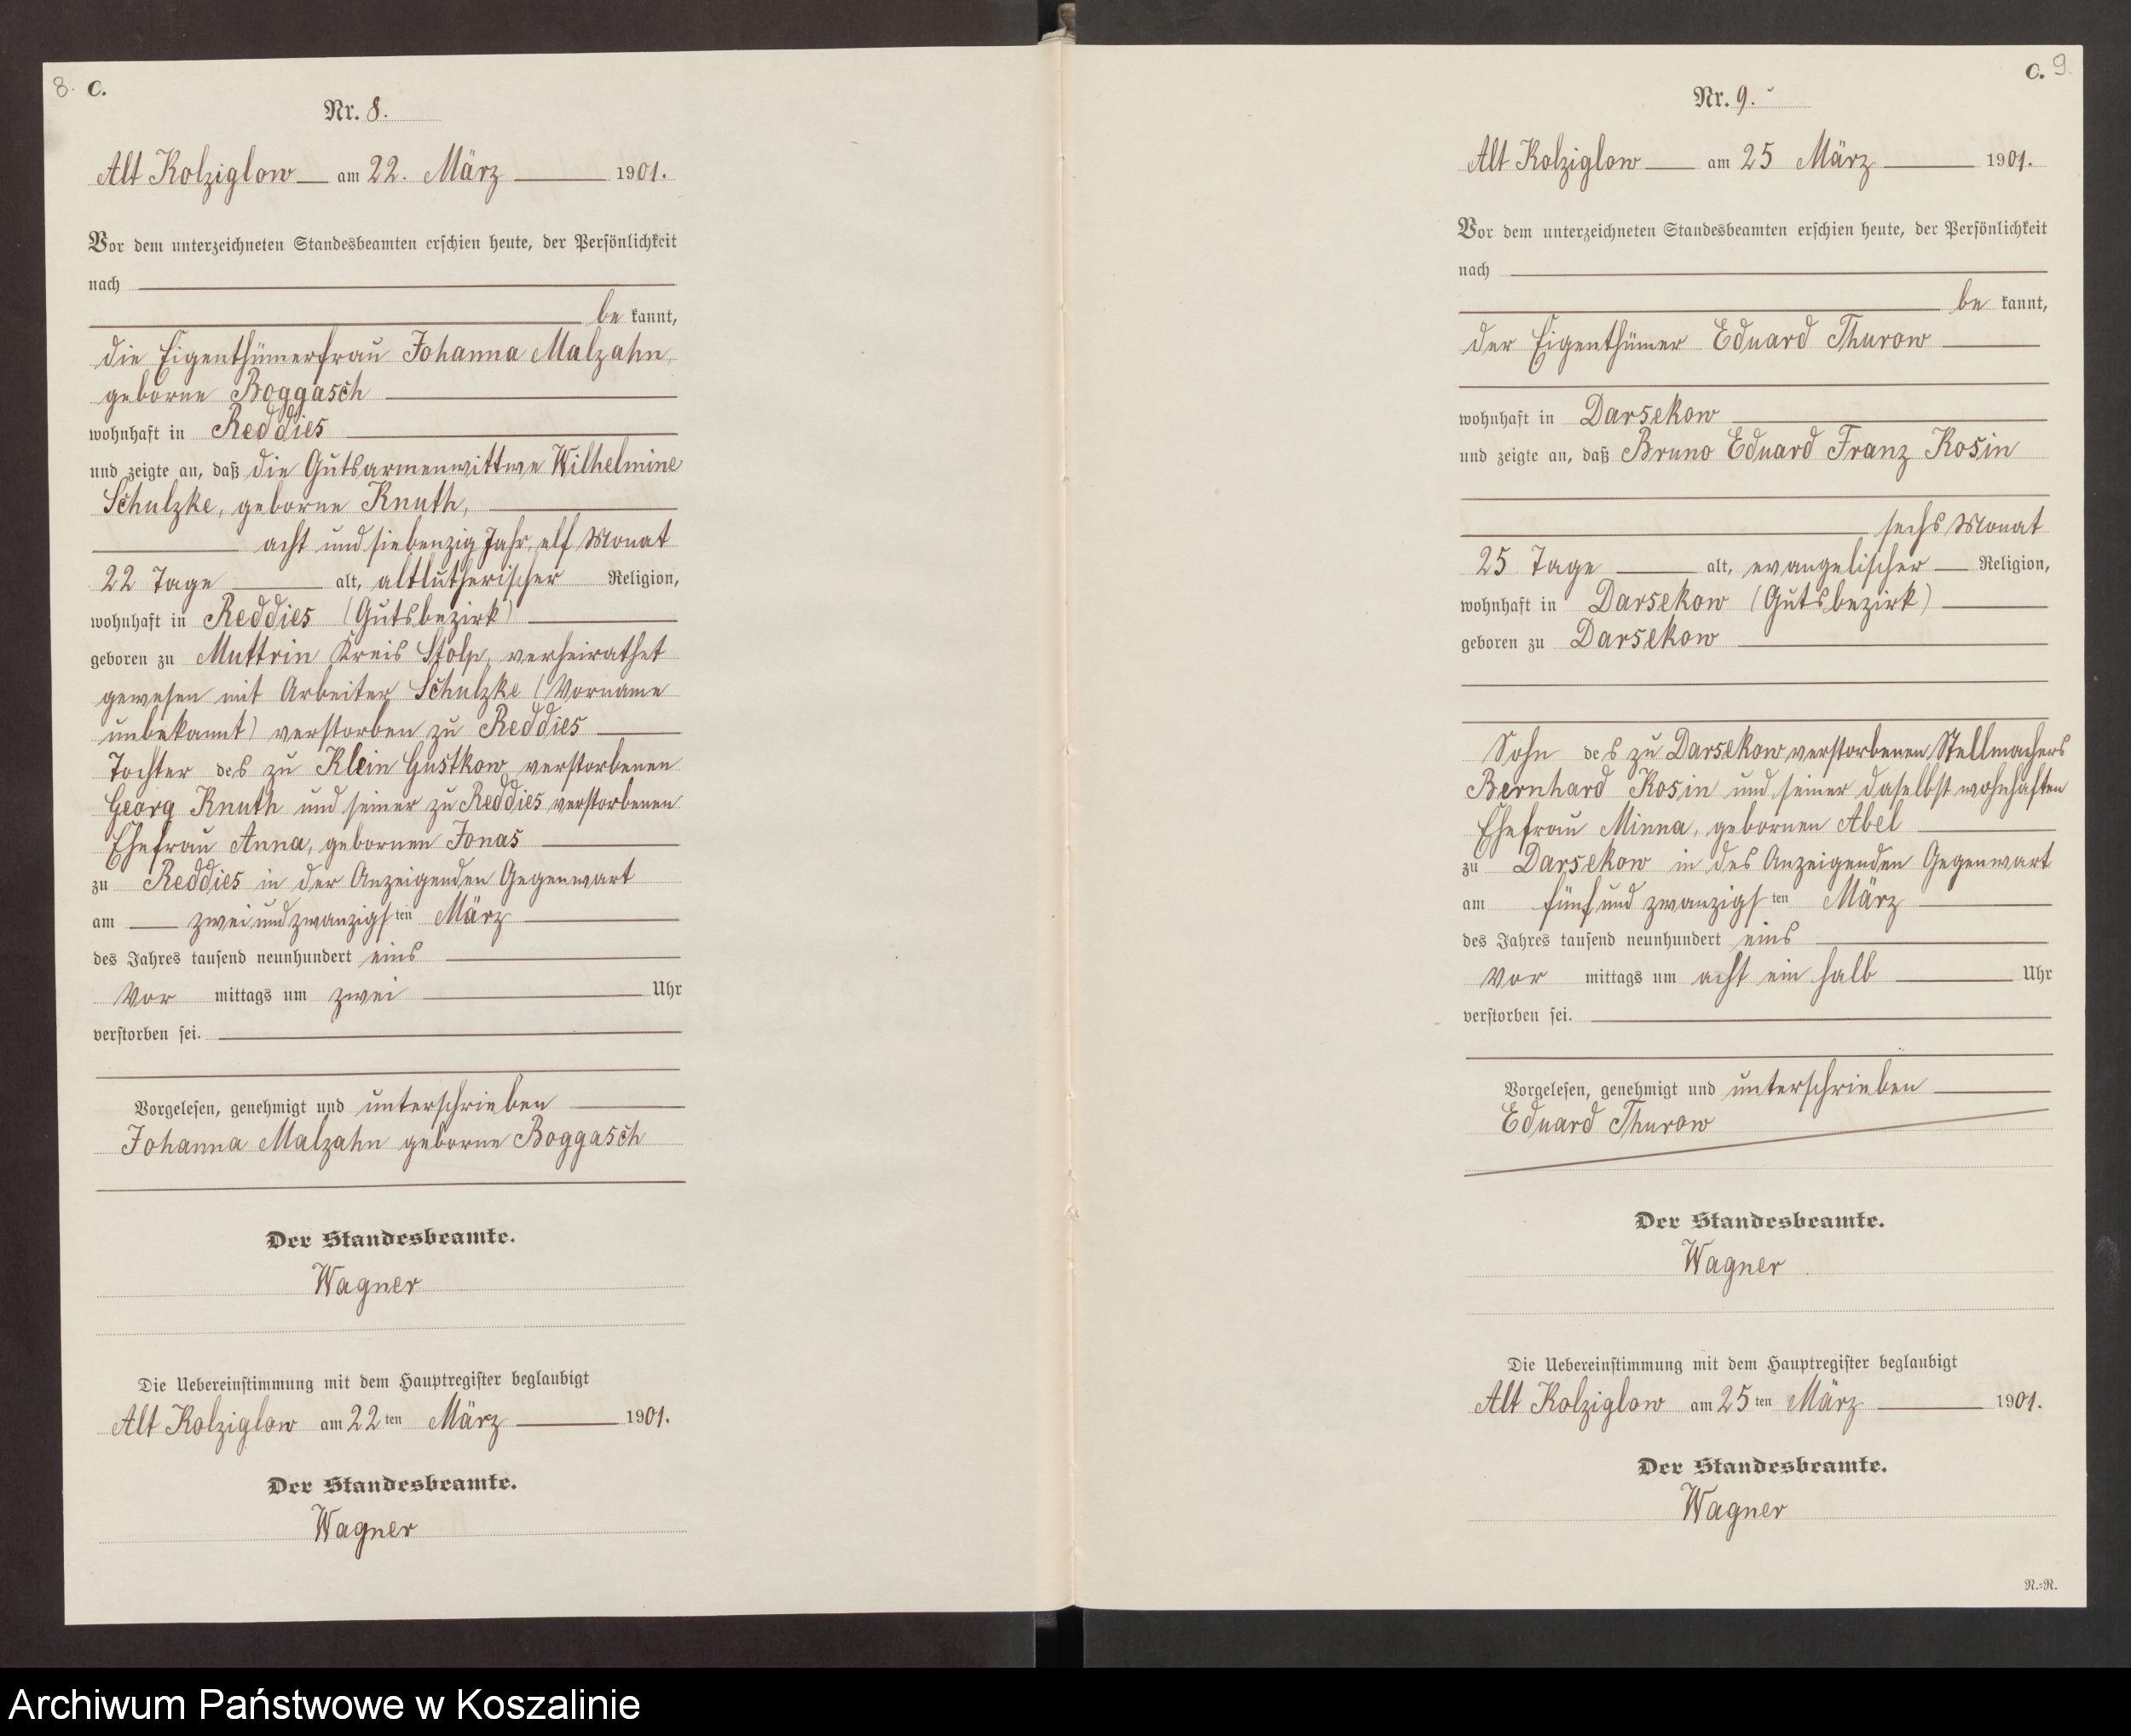 8. C.
Nr. 8.
Alt Kolziglow am 22. März 1901.
Vor dem unterzeichneten Standesbeamten erschien heute, der Persönlichkeit
nach
be kannt,
die Eigenthümerfrau Johanna Malzahn
geborne Boggasch
wohnhaft in Reddies
und zeigte an, daß die Gutsarmenwittwe Wilhelmine
Schulzke, geborne Knuth,
acht und siebenzig Jahr, elf Monat
22 Tage alt, altlutherischer Religion,
wohnhaft in Reddies (Gutsbezirk)
geboren zu Muttrin Kreis Stolp, verheirathet
gewesen mit Arbeiter Schulzke (Vorname
unbekannt) verstorben zu Reddies
Tochter des zu Klein Gustkow verstorbenen
Georg Knuth und seiner zu Reddies verstorbenen
Ehefrau Anna, gebornen Jonas
zu Reddies in der Anzeigenden Gegenwart
am zwei und zwanzigsten März
des Jahres tausend neunhundert eins
Vor mittags um zwei Uhr
verstorben sei.
Vorgelesen, genehmigt und unterschrieben
Johanna Malzahn geborne Boggasch
Der Standesbeamte.
Wagner
Die Uebereinstimmung mit dem Hauptregister beglaubigt
Alt Kolziglow am 22ten März 1901.
Der Standesbeamte.
Wagner
C. 9.
Nr. 9.
Alt Kolziglow am 25 März 1901.
Vor dem unterzeichneten Standesbeamten erschien heute, der Persönlichkeit
nach
be kannt,
der Eigenthümer Eduard Thurow
wohnhaft in Darsekow
und zeigte an, daß Bruno Eduard Franz Kosin
sechs Monat
25 Tage alt, evangelischer Religion,
wohnhaft in Darsekow (Gutsbezirk)
geboren zu Darsekow
Sohn des zu Darsekow verstorbenen Stellmachers
Bernhard Kosin und seiner daselbst wohnhaften
Ehefrau Minna, gebornen Abel
zu Darsekow in des Anzeigenden Gegenwart
am fünf und zwanzigsten März
des Jahres tausend neunhundert eins
Vor mittags um acht ein halb Uhr
verstorben sei.
Vorgelesen, genehmigt und unterschrieben
Eduard Thurow
Der Standesbeamte.
Wagner
Die Uebereinstimmung mit dem Hauptregister beglaubigt
Alt Kolziglow am 25ten März 1901.
Der Standesbeamte.
Wagner
N.=N.
Archiwum Państwowe w Koszalinie